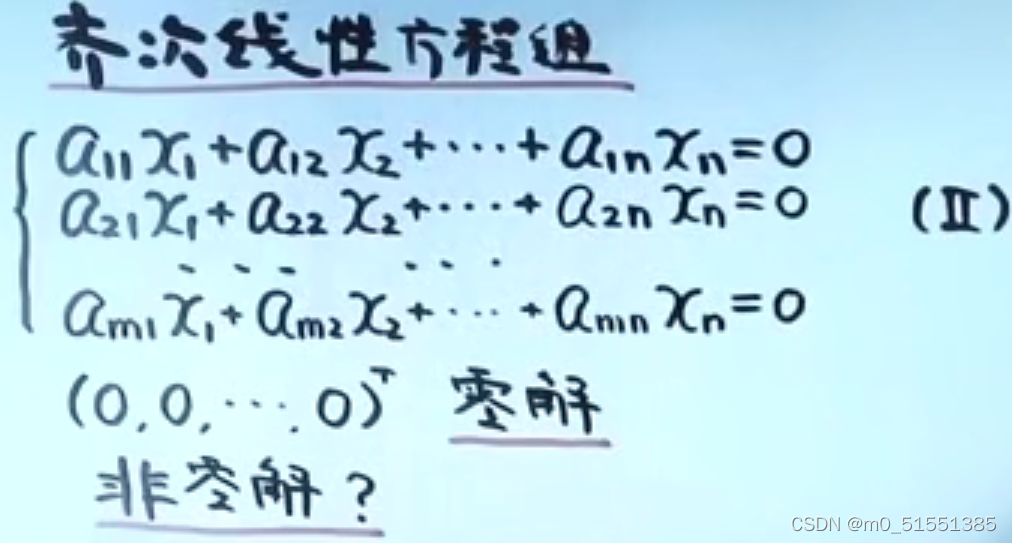 齐次线性方程组
a₁₁x₁+a₁₂x₂+⋯+a₁ₙxₙ=0
a₂₁x₁+a₂₂x₂+⋯+a₂ₙxₙ=0 (Ⅱ)
⋯ ⋯
aₘ₁x₁+aₘ₂x₂+⋯+aₘₙxₙ=0
(0,0,⋯,0)ᵀ 零解
非零解?
CSDN @m0_51551385